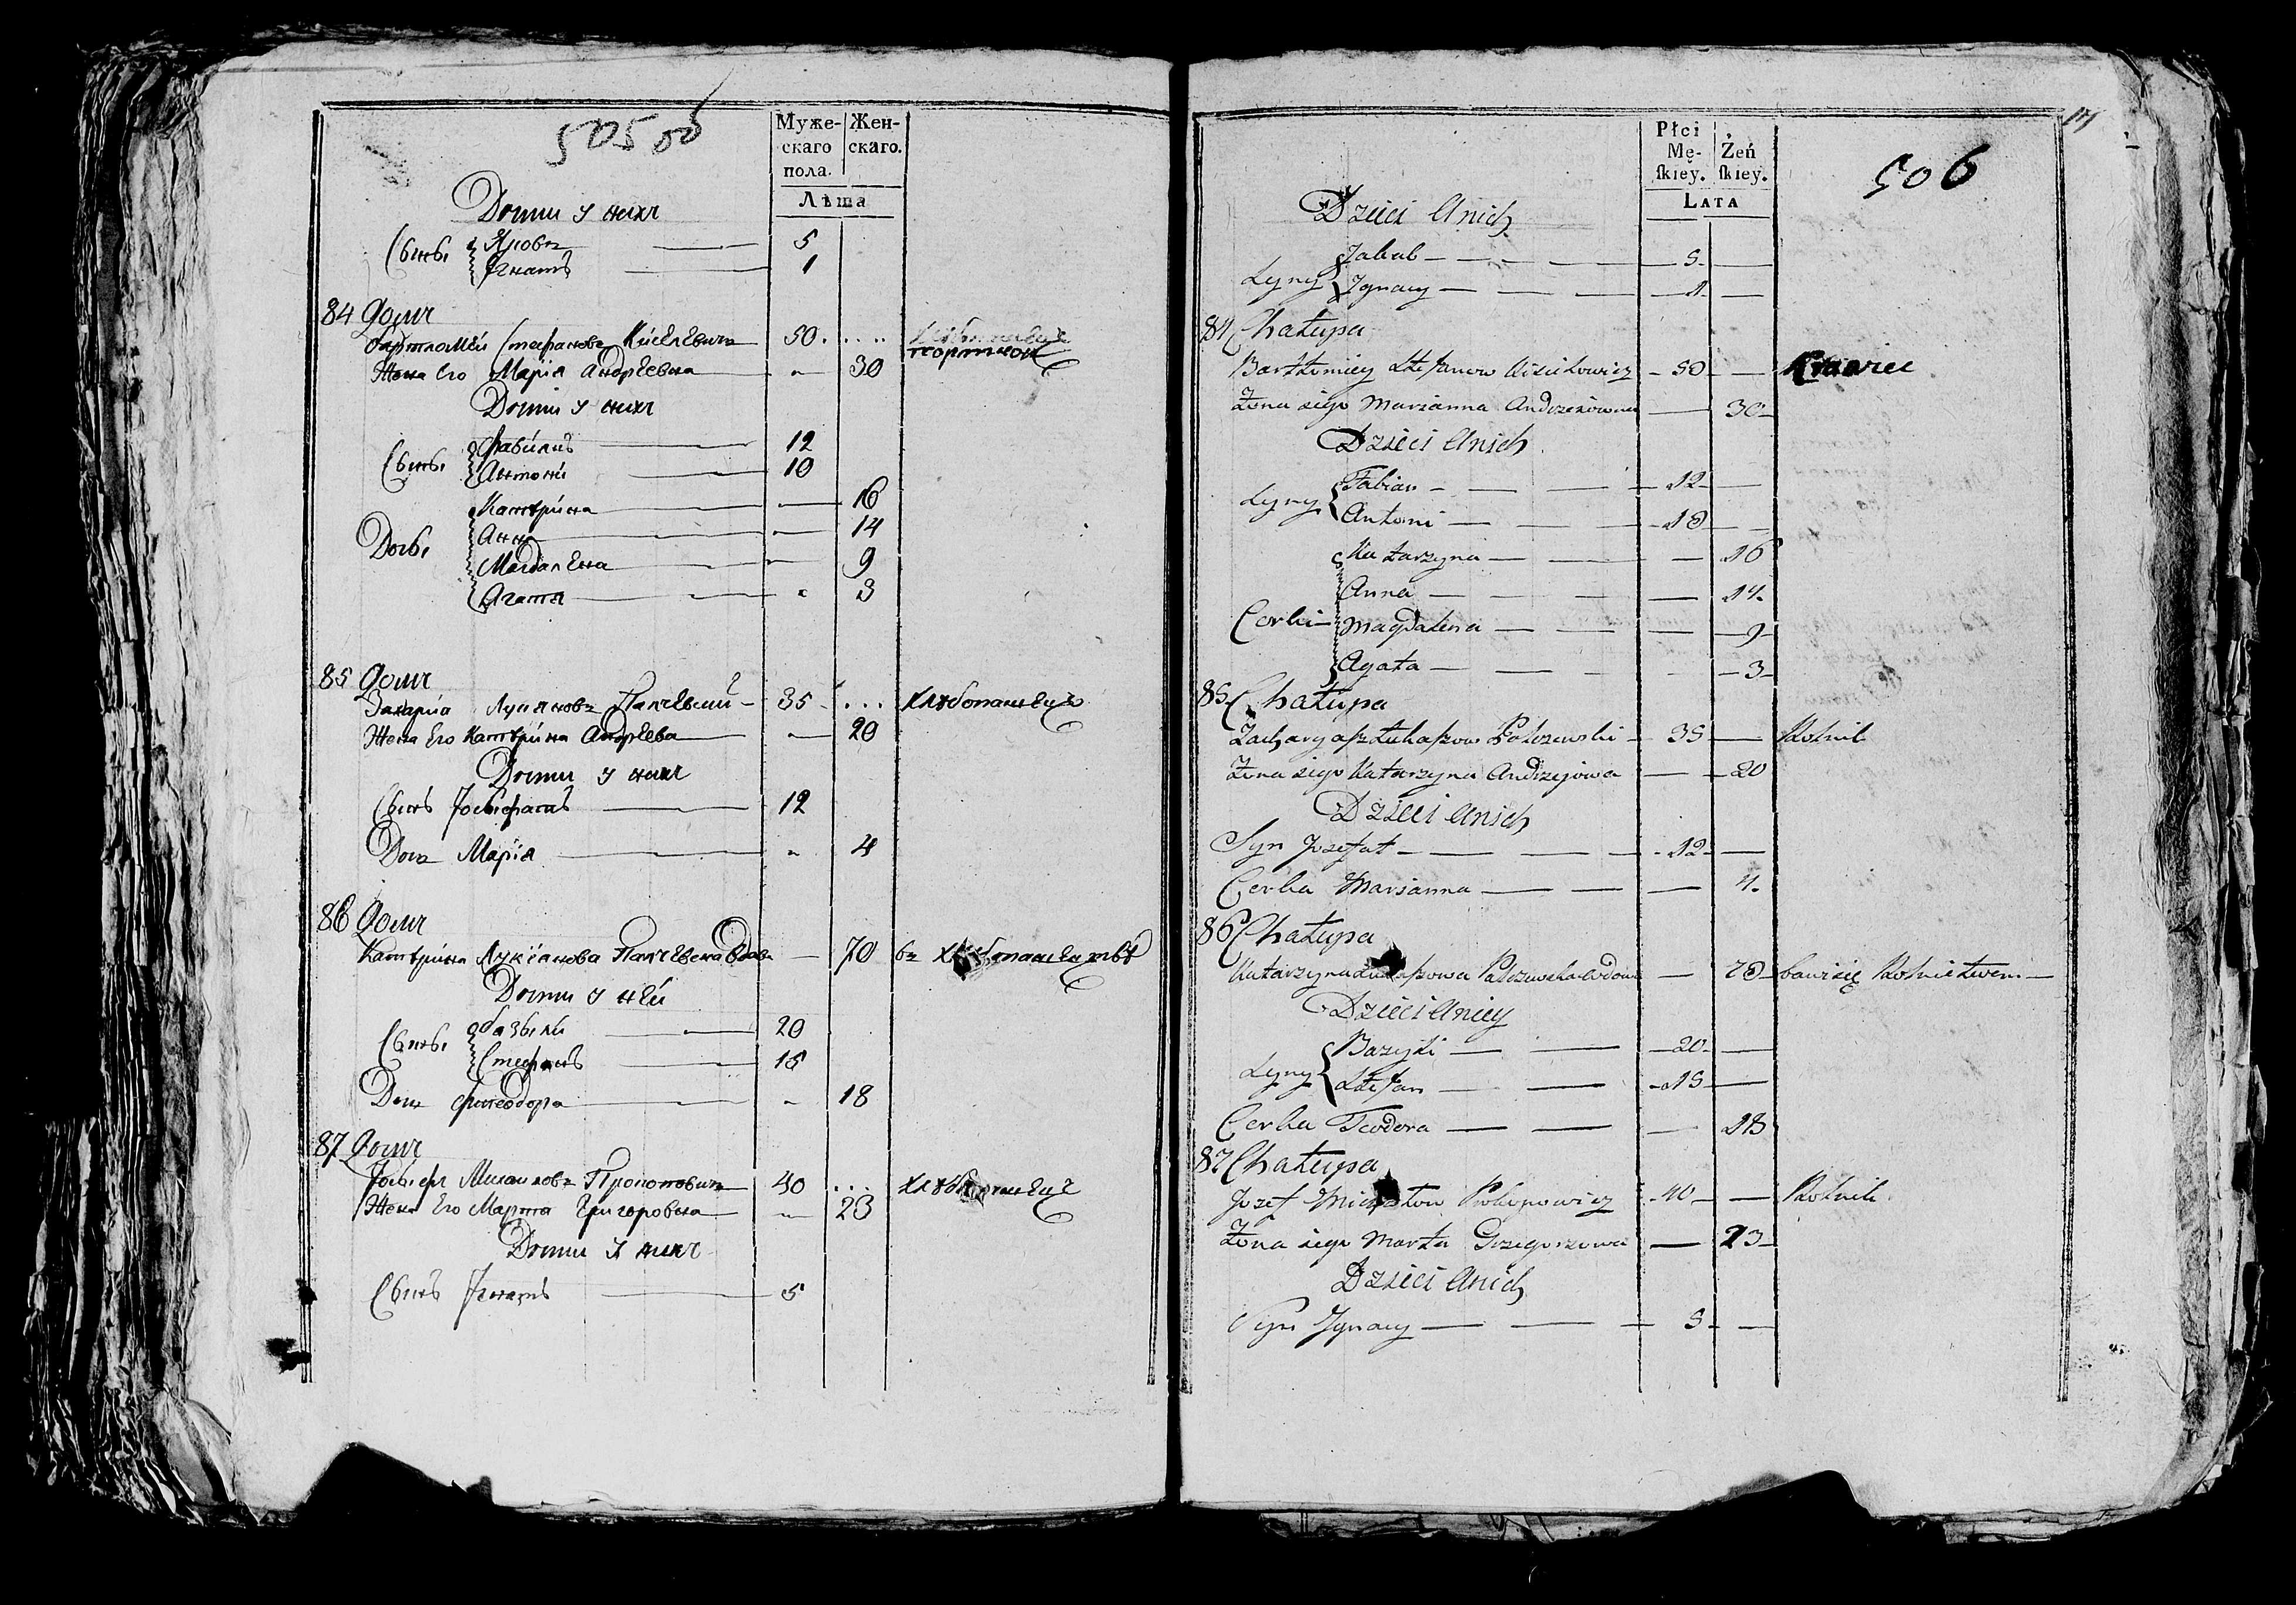 505
Муже-
скаго
пола.
Жен-
скаго.
Лѣта
Дѣти у нихъ
Сыны Яковъ 5
Игнатъ 1
84 Домъ
Бартломѣй Стефановъ Киселевичъ 50 портной
Жена Его Марія Андреевна 30
Дѣти у нихъ
Сыны Фабіянъ 12
Антоній 10
Катерина 16
Дочь Анна 14
Магдалена 9
Агата 3
85 Домъ
Захарія Лукяновъ 35 хлѣбопашецъ
Жена Его Катерина Андреева 20
Дѣти у нихъ
Сынъ Іосыфатъ 12
Дочь Марія 4
86 Домъ
Катерина Лукіанова Вдова 70 въ хлѣбопашествѣ
Дѣти у ней
Сыны Базыли 20
Стефанъ 15
Дочь Фтеодора 18
87 Домъ
Іосыфъ Михаловъ Прокоповичъ 40 хлѣбопашецъ
Жена Его Марта Григоровна 23
Дѣти у нихъ
Сынъ Игнатъ 5
506
Płci
Mę-
skiey.
Żeń
skiey.
LATA
Dzieci Unich
Jakub 5
Syny Jgnacy 1
84 Chałupa
Bartłomiey Stefanow Kisielowicz 50 Krawiec
Żona iego Marianna Andrzeiowna 30
Dzieci Unich
Fabian 12
Syny Antoni 10
Katarzyna 16
Anna 14
Corki Magdalena 9
Agata 3
85 Chałupa
Zacharyasz Łukaszow Palczewski 35 Rolnik
Żona iego Katarzyna Andrzejowa 20
Dzieci Unich
Syn Jozefat 12
Corka Marianna 4
86 Chałupa
Katarzyna Łukaszowa Palczewska wdowa 70 bawi się Rolnictwem
Dzieci Uniey
Bazyli 20
Syny Stefan 15
Corka Teodora 18
87 Chałupa
Jozef Michałow Prokopowicz 40 Rolnik
Żona iego Marta Grzegorzowa 23
Dzieci Unich
Syn Jgnacy 5